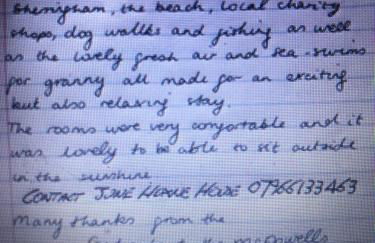 Sheringham, the beach, local charity
shops, dog walks and fishing as well
as the lovely fresh air and sea-swims
for granny all made for an exciting
but also relaxing stay.
The rooms were very comfortable and it
was lovely to be able to sit outside
in the sunshine
CONTACT 07966133463
Many thanks from the
the McDowells